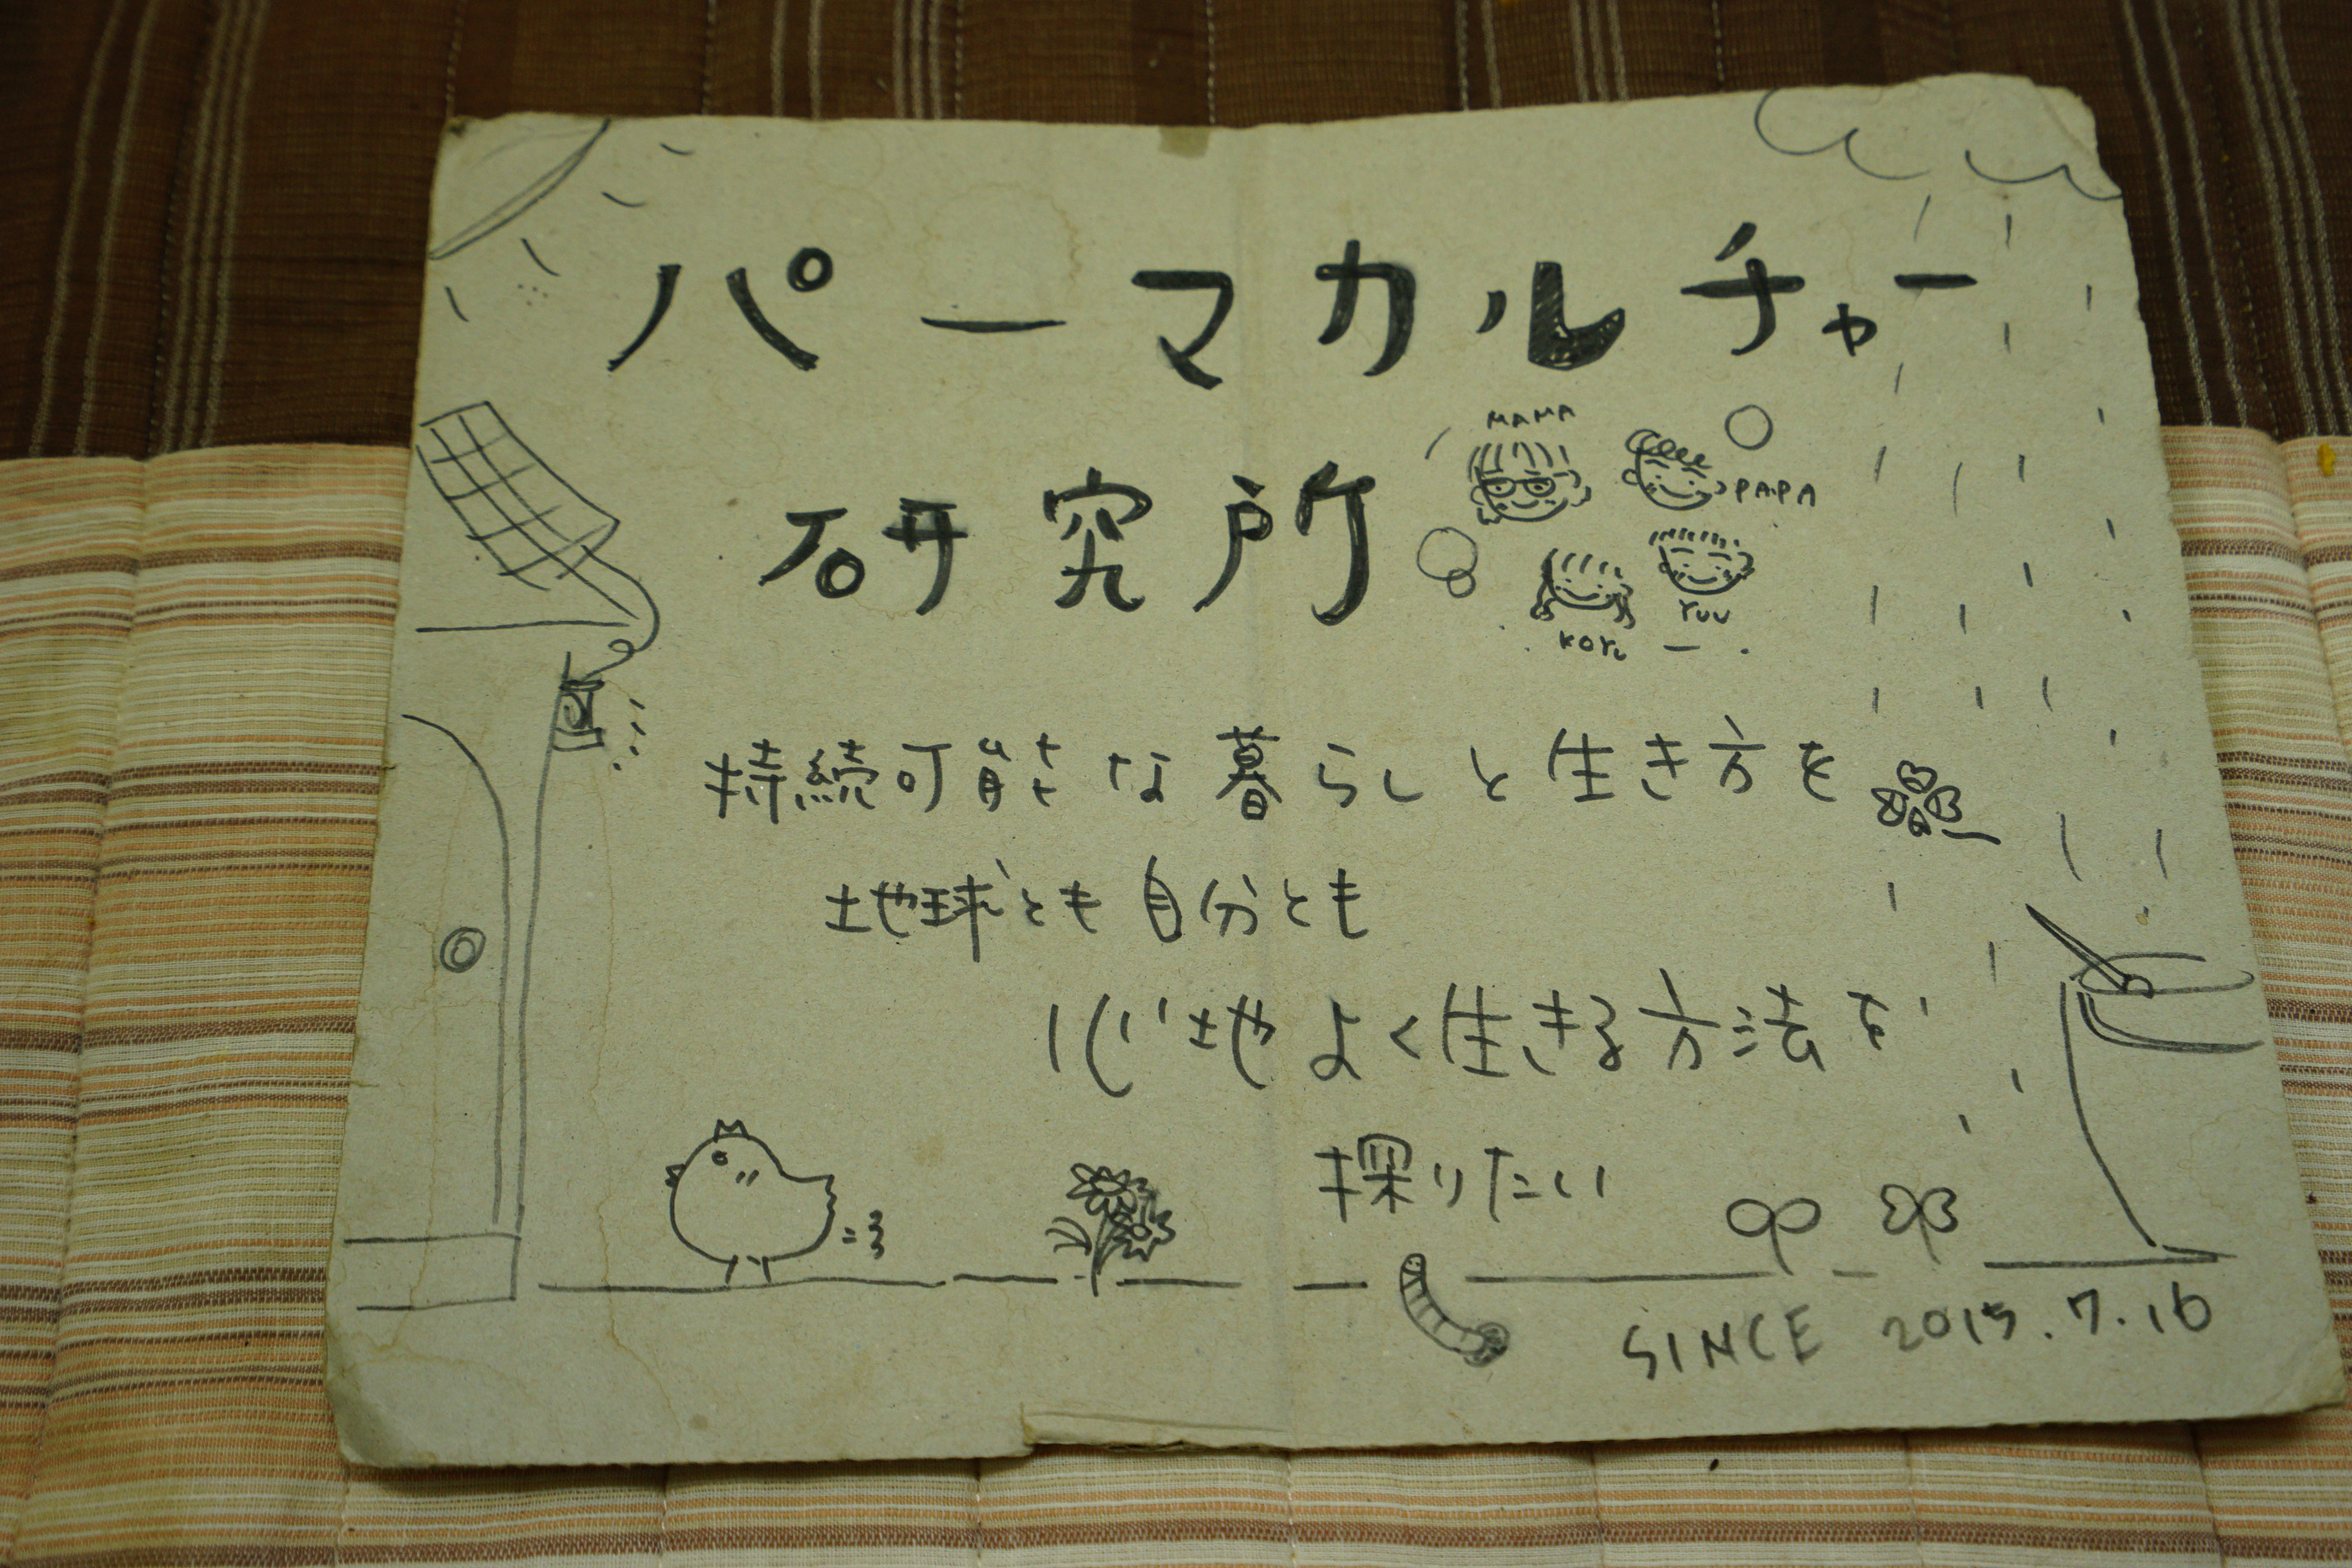 パーマカルチャー
研究所
MAMA
PAPA
YUU
持続可能な暮らしと生き方を
地球とも自分とも
心地よく生きる方法を
探りたい
SINCE 2015.7.16